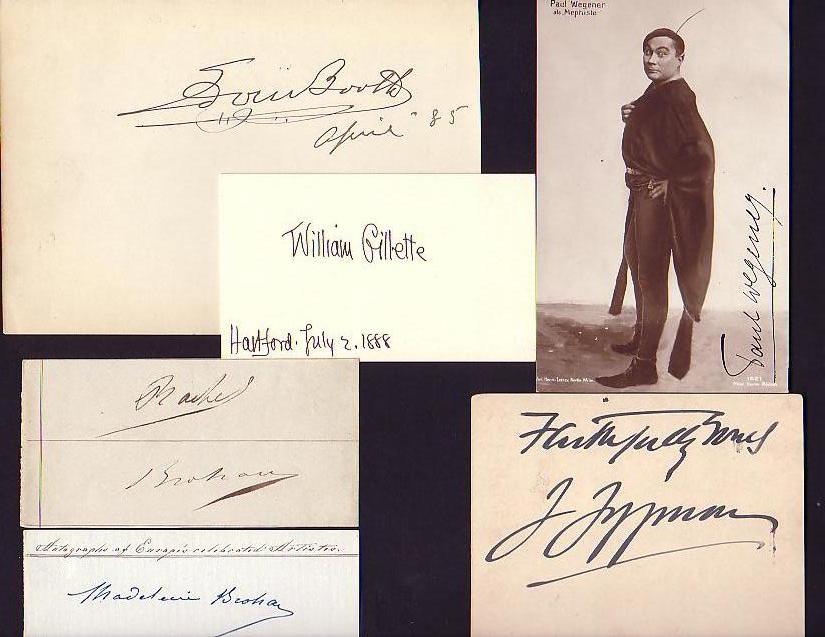 Edwin Booth
April " 85
William Gillette
Hartford. July 2. 1888
Paul Wegener
als „Mephisto“
Paul Wegener.
1621
Rachel
Brohan
Autographs of Europe's celebrated Artistes.
Madeleine Brohan
Faithfully Yours